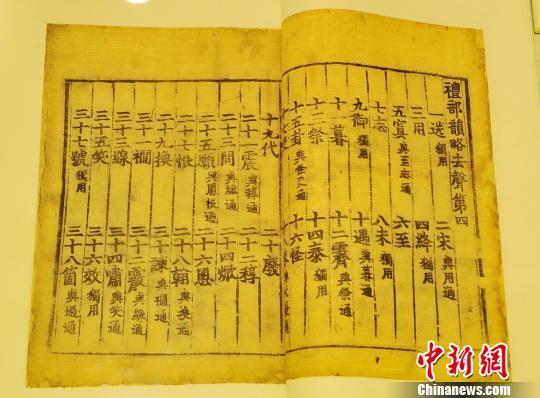 禮部韻略去聲第四
一送獨用 二宋與用通
三用 四絳獨用
五寘與至志通 六至
七志 八未獨用
九御獨用 十遇與暮通
十一暮 十二霽與祭通
十三祭 十四泰獨用
十五卦與怪夬通 十六怪
十九代 二十廢
二十一震與稕通 二十二稕
二十三問與焮通 二十四焮
二十五願與慁恨通 二十六慁
二十七恨 二十八翰與換通
二十九換 三十諫與襇通
三十一襇 三十二霰與線通
三十三線 三十四嘯與笑通
三十五笑 三十六效獨用
三十七號獨用 三十八箇與過通
中新网
Chinanews.com